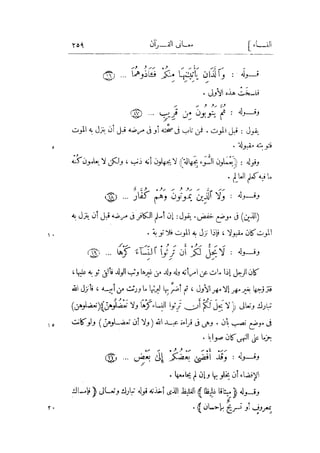 النساء ] معانى القــرآن ٢٥٩
وقوله : وَٱلَّذَانِ يَأْتِيَٰنِهَا مِنكُمْ فَـَٔاذُوهُمَا ... ١٦
فنسخت هذه الأولى .
وقوله : ثُمَّ يَتُوبُونَ مِن قَرِيبٍ ... ١٧
يقول : قبل الموت . فمن تاب فى صحّته أو فى مرضه قبل أن ينزل به الموت
فتوبته مقبولة . ٥
وقوله : (يَعْمَلُونَ السُّوءَ بِجَهَالَة) لا يجهلون أنه ذنب ، ولكن لا يعلمون كُنْه
ما فيه كعلم العالِم .
وقوله : وَلَا ٱلَّذِينَ يَمُوتُونَ وَهُمْ كُفَّارٌ ... ١٨
(الذين) فى موضع خفض. يقول: إن أسلم الكافر فى مرضه قبل أن ينزل به
الموت كان مقبولا ، فإذا نزل به الموت فلا توبة . ١٠
وقوله : لَا يَحِلُّ لَكُمْ أَن تَرِثُوا۟ ٱلنِّسَآءَ كَرْهًا ... ١٩
كان الرجل إذا مات عن امرأته وله ولد من غيرها وثب الولد فألقى ثوبه عليها،
فتزوّجها بغير مهر إلا مهر الأول ، ثم أضرّ بها ليرثها ما ورثت من أبيه ، فأنزل الله
تبارك وتعالى ( لا يحلّ لكم أن ترثوا النساء كرها ولا تعضلوهن ) (تعضلوهن)
فى موضع نصب بأن . وهى فى قراءة عبد الله ( ولا أن تعضلوهن ) ولو كانت ١٥
جزما على النهى كان صوابا .
وقوله : وَقَدْ أَفْضَىٰ بَعْضُكُمْ إِلَىٰ بَعْضٍ ... ٢١
الإفضاء أن يخلو بها وإن لم يجامعها .
وقوله ( ميثاقا غليظا ) الغليظ الذى أخذنه قوله تبارك وتعالى ( فإمساك
بمعروف أو تسريح بإحسان ) . ٢٠